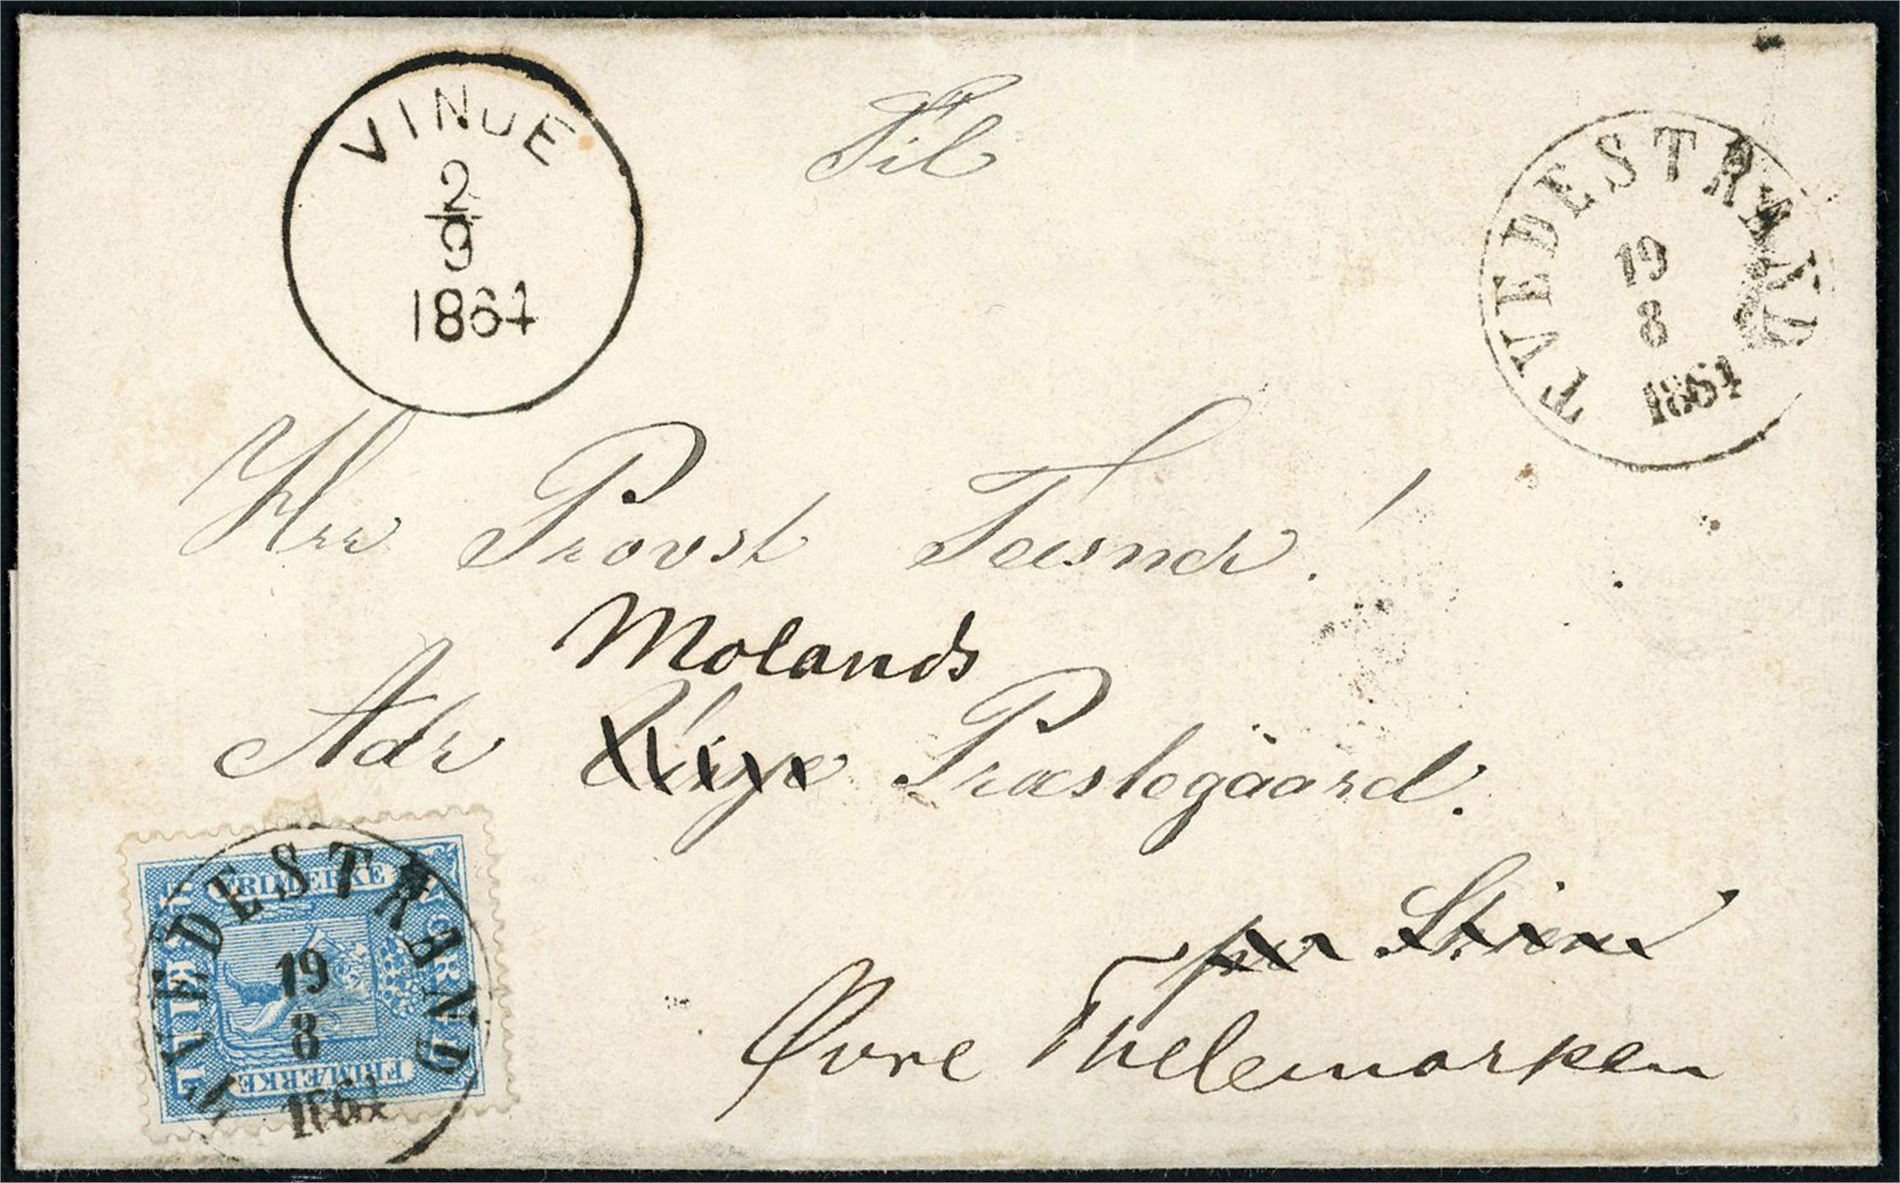 VINJE
2
9
1864
Til
TVEDESTRAND
19
8
1864
Hrr Provst Tæsner!
Molands
Adr Præstegaard.
per Skien
Øvre Thelemarken
FRIMÆRKE
FRIMÆRKE
TVEDESTRAND
19
8
1864